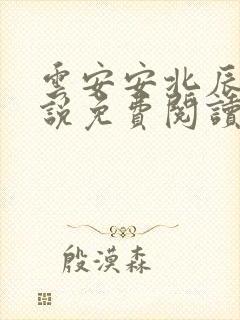 雲安安北辰
說免費閱讀
殷漠森